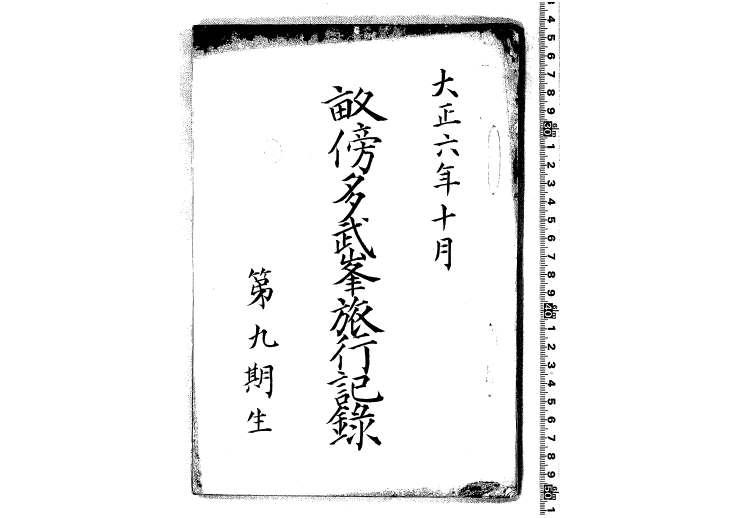 大正六年十月
畝傍多武峯旅行記錄
第九期生